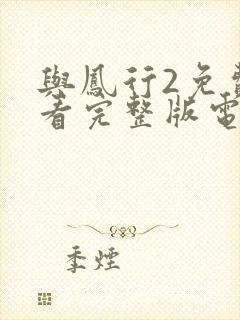 與鳳行2免費
看完整版電
季煙